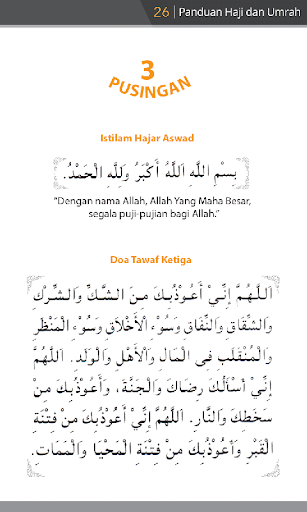 26 | Panduan Haji dan Umrah
3
PUSINGAN
Istilam Hajar Aswad
بِسْمِ اللَّهِ اَللَّهُ أَكْبَرُ وَلِلَّهِ الْحَمْدُ.
"Dengan nama Allah, Allah Yang Maha Besar,
segala puji-pujian bagi Allah."
Doa Tawaf Ketiga
اَللَّهُمَّ إِنِّيْ أَعُوْذُبِكَ مِنَ الشَّكِّ وَالشِّرْكِ
وَالشِّقَاقِ وَالنِّفَاقِ وَسُوْءِ الْأَخْلَاقِ وَسُوْءِ الْمَنْظَرِ
وَالْمُنْقَلَبِ فِى الْمَالِ وَالْأَهْلِ وَالْوَلَدِ. اَللَّهُمَّ
إِنِّيْ أَسْأَلُكَ رِضَاكَ وَالْجَنَّةَ، وَأَعُوْذُبِكَ مِنْ
سَخَطِكَ وَالنَّارِ. اَللَّهُمَّ إِنِّيْ أَعُوْذُبِكَ مِنْ فِتْنَةِ
الْقَبْرِ وَأَعُوْذُبِكَ مِنْ فِتْنَةِ الْمَحْيَا وَالْمَمَاتِ.